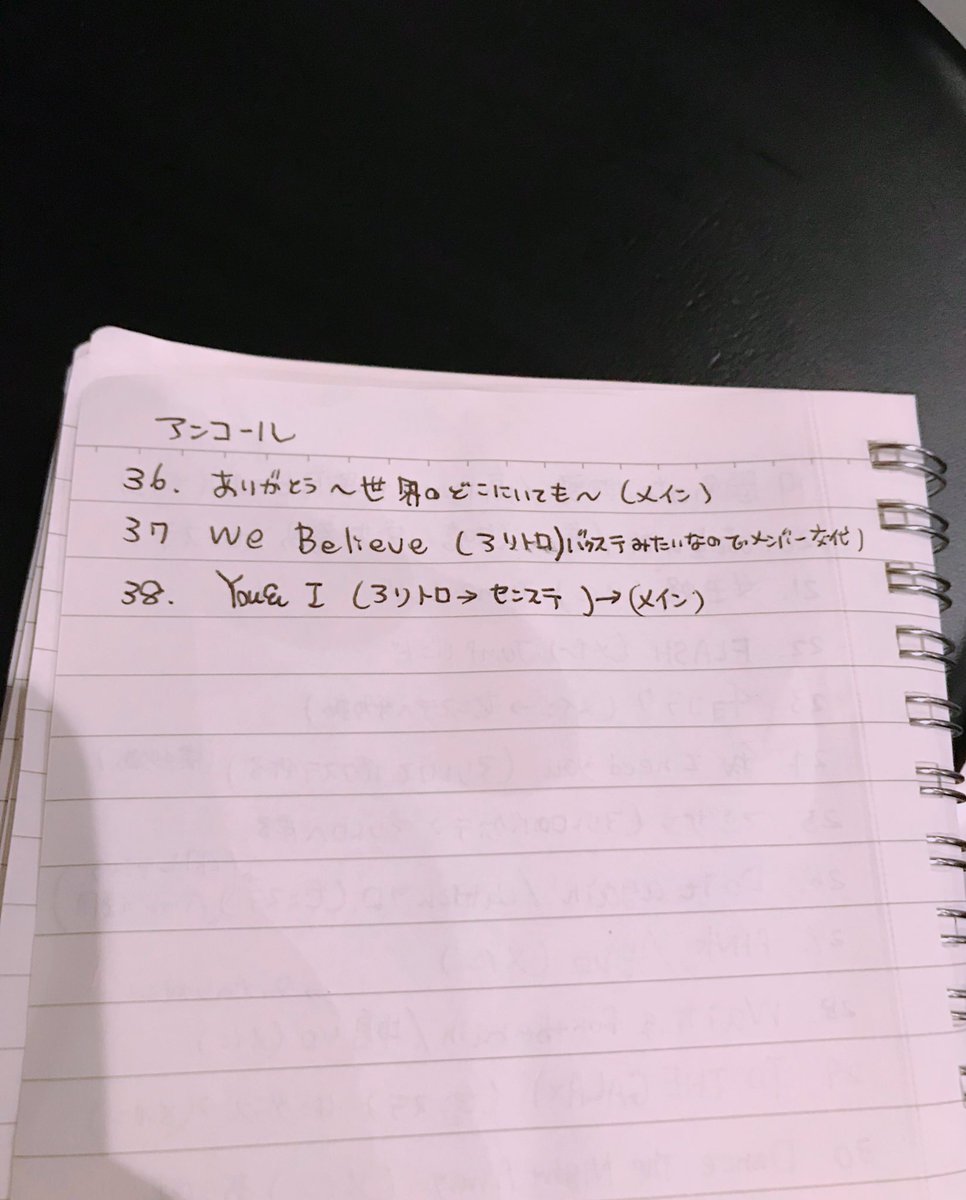 アンコール
36. ありがとう〜世界のどこにいても〜 (メイン)
37 We Believe (3リトロ)バクステみたいなのでメンバー交代)
38. You & I (3リトロ→センステ)→(メイン)